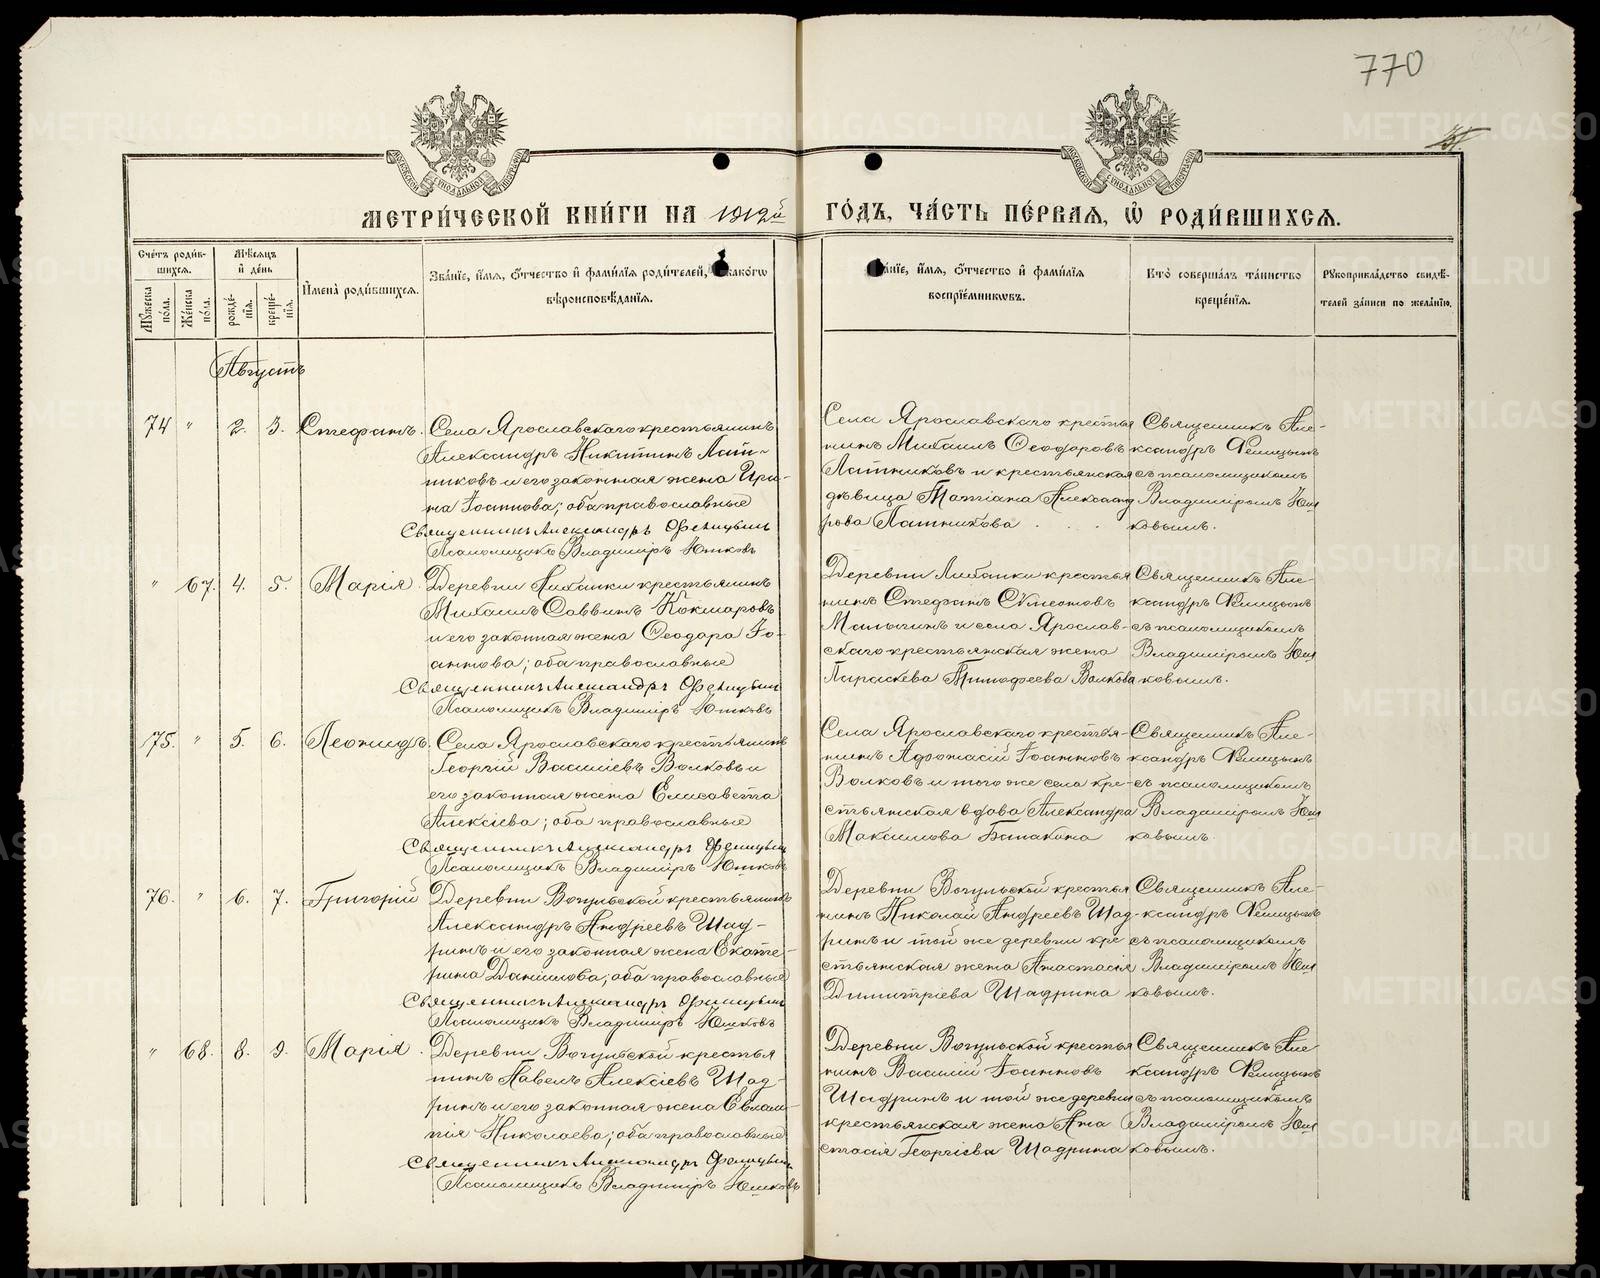 770
МЕТРИ́ЧЕСКОЙ КНИ́ГИ НА 1912й ГО́ДЪ, ЧА́СТЬ ПЕ́РВАЯ, Ѡ РОДИ́ВШИХСЯ.
Сче́тъ роди́в-
шихся.
Му́жеска по́ла.
Же́нска по́ла.
Мѣ́сяцъ
и де́нь
рожде́-
нїя.
креще́-
нїя.
Имена̀ роди́вшихся.
Зва́нїе, и́мя, о́тчество и фами́лїя роди́телей, и како́гѡ
вѣроисповѣ́данїя.
Зва́нїе, и́мя, о́тчество и фами́лїя
воспрїе́мникѡвъ.
Кто̀ соверша́лъ та́инство
креще́нїя.
Рукоприкла́дство свидѣ́-
телей за́писи по жела́нїю.
Августъ
74 " 2. 3. Стефанъ.
Села Ярославскаго крестьянинъ
Александръ Никитинъ Лат-
никовъ и его законная жена Ири-
на Іоаннова; оба православные
Священникъ Александръ Феницынъ
Псаломщикъ Владиміръ Юшковъ
Села Ярославскаго крестья
нинъ Михаилъ Ѳеодоровъ
Латниковъ и крестьянская
дѣвица Татіана Александ
рова Латникова
Священникъ Але-
ксандръ Феницынъ
съ псаломщикомъ
Владиміромъ Юш
ковымъ.
" 67. 4. 5. Марія.
Деревни крестьянинъ
Михаилъ Саввинъ Кокшаровъ
и его законная жена Ѳеодора Іо-
аннова; оба православные
Священникъ Александръ Феницынъ
Псаломщикъ Владиміръ Юшковъ
Деревни крестья
нинъ Стефанъ Сѵмеоновъ
и села Ярослав-
скаго крестьянская жена
Параскева Тимофеева Волкова
Священникъ Але-
ксандръ Феницынъ
съ псаломщикомъ
Владиміромъ Юш
ковымъ.
75. " 5. 6. Леонидъ.
Села Ярославскаго крестьянинъ
Георгій Василіевъ Волковъ и
его законная жена Елисавета
Алексіева; оба православные
Священникъ Александръ Феницынъ
Псаломщикъ Владиміръ Юшковъ
Села Ярославскаго крестья-
нинъ Афонасій Іоанновъ
Волковъ и того же села кре-
стьянская вдова Александра
Максимова
Священникъ Але-
ксандръ Феницынъ
съ псаломщикомъ
Владиміромъ Юш
ковымъ.
76. " 6. 7. Григорій
Деревни Вогульской крестьянинъ
Александръ Андреевъ Шад-
ринъ и его законная жена Екате-
рина Даніилова; оба православные
Священникъ Александръ Феницынъ
Псаломщикъ Владиміръ Юшковъ
Деревни Вогульской крестья
нинъ Николай Андреевъ Шад-
ринъ и той же деревни кре
стьянская жена Анастасія
Димитріева Шадрина
Священникъ Але-
ксандръ Феницынъ
съ псаломщикомъ
Владиміромъ Юш
ковымъ.
" 68. 8. 9. Марія.
Деревни Вогульской крестья
нинъ Павелъ Алексіевъ Шад-
ринъ и его законная жена Евлам-
пія Николаева; оба православные
Священникъ Александръ Феницынъ
Псаломщикъ Владиміръ Юшковъ
Деревни Вогульской крестья
нинъ Василій Іоанновъ
Шадринъ и той же деревни
крестьянская жена Ана
стасія Георгіева Шадрина
Священникъ Але-
ксандръ Феницынъ
съ псаломщикомъ
Владиміромъ Юш
ковымъ.
METRIKI.GASO-URAL.RU